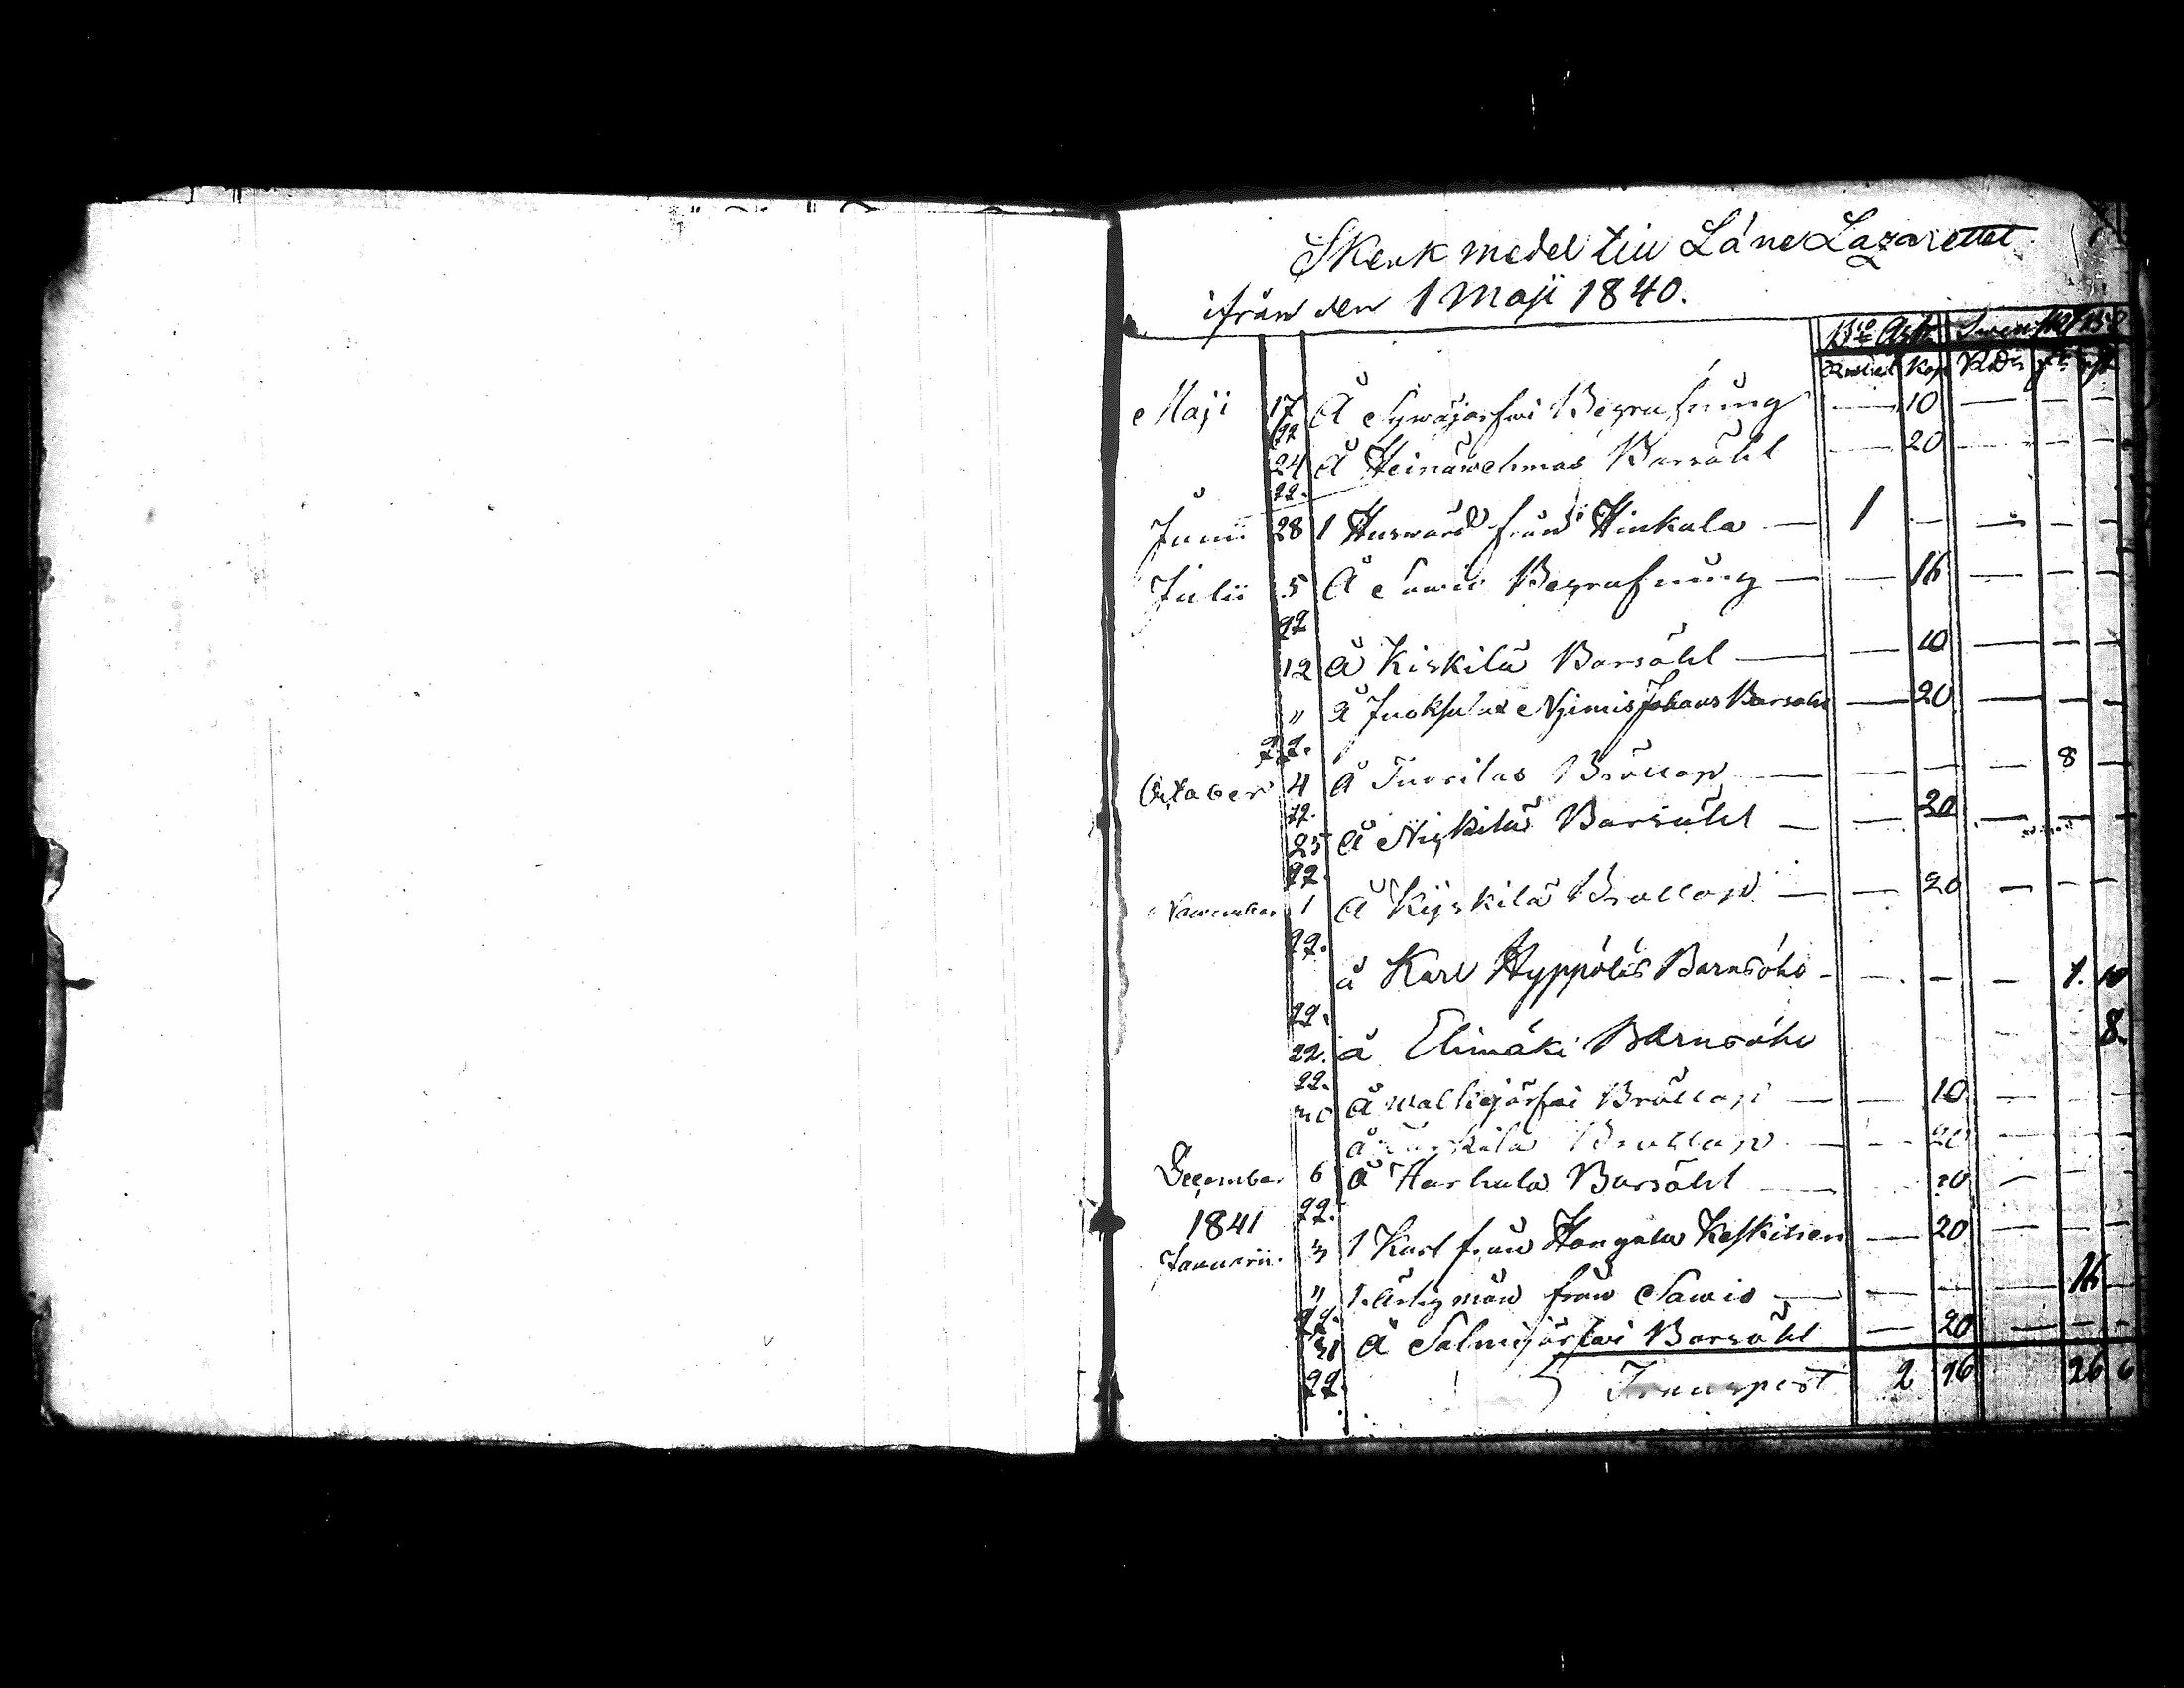 Skenk medel till Läne Lazarettet
ifrån den 1 Maji 1840.
Bco Ass. Svensk
Rubel Kop RDr
Maji 17 Å Sywäjärfwi Begrafning — 10 — — —
24 Å Heinäwehmas Barsöhl — 20 — — —
Junii 28 1 från Hinkala — 1 — — — —
Julii 5 Å Sawio Begrafning — — 16 — — —
12 å Kiskilä Barsöhl — — 10 — — —
" å Niemis Johans Barsöhl — 20 — — —
October 4 å Tuorilas Bröllop — — — — 8 —
25 å Niskilä Barsöhl — — 20 — — —
November 1 å Kyskilä Bröllop — — 20 — — —
å Karl Hyppöläs Barnsöhl — — — — 1. 10
22. å Elimäki Barnsöhl 8.
30 å Walkejärfwi Bröllop — — 10 — — —
å Bröllop — — 20 — — —
December 6 å Harhala Barsöhl — 20 — — —
1841
Januarii 3 1 Karl från Hangala Keskinen — 20 — — —
" 1. från Sawio — — — — 16 —
31 å Salmijärfwi Barsöhl — 20 — — —
Transport 2 96 26 6